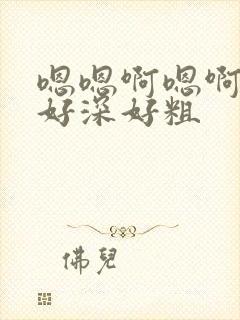 嗯嗯啊嗯啊
好深好粗
佛兒